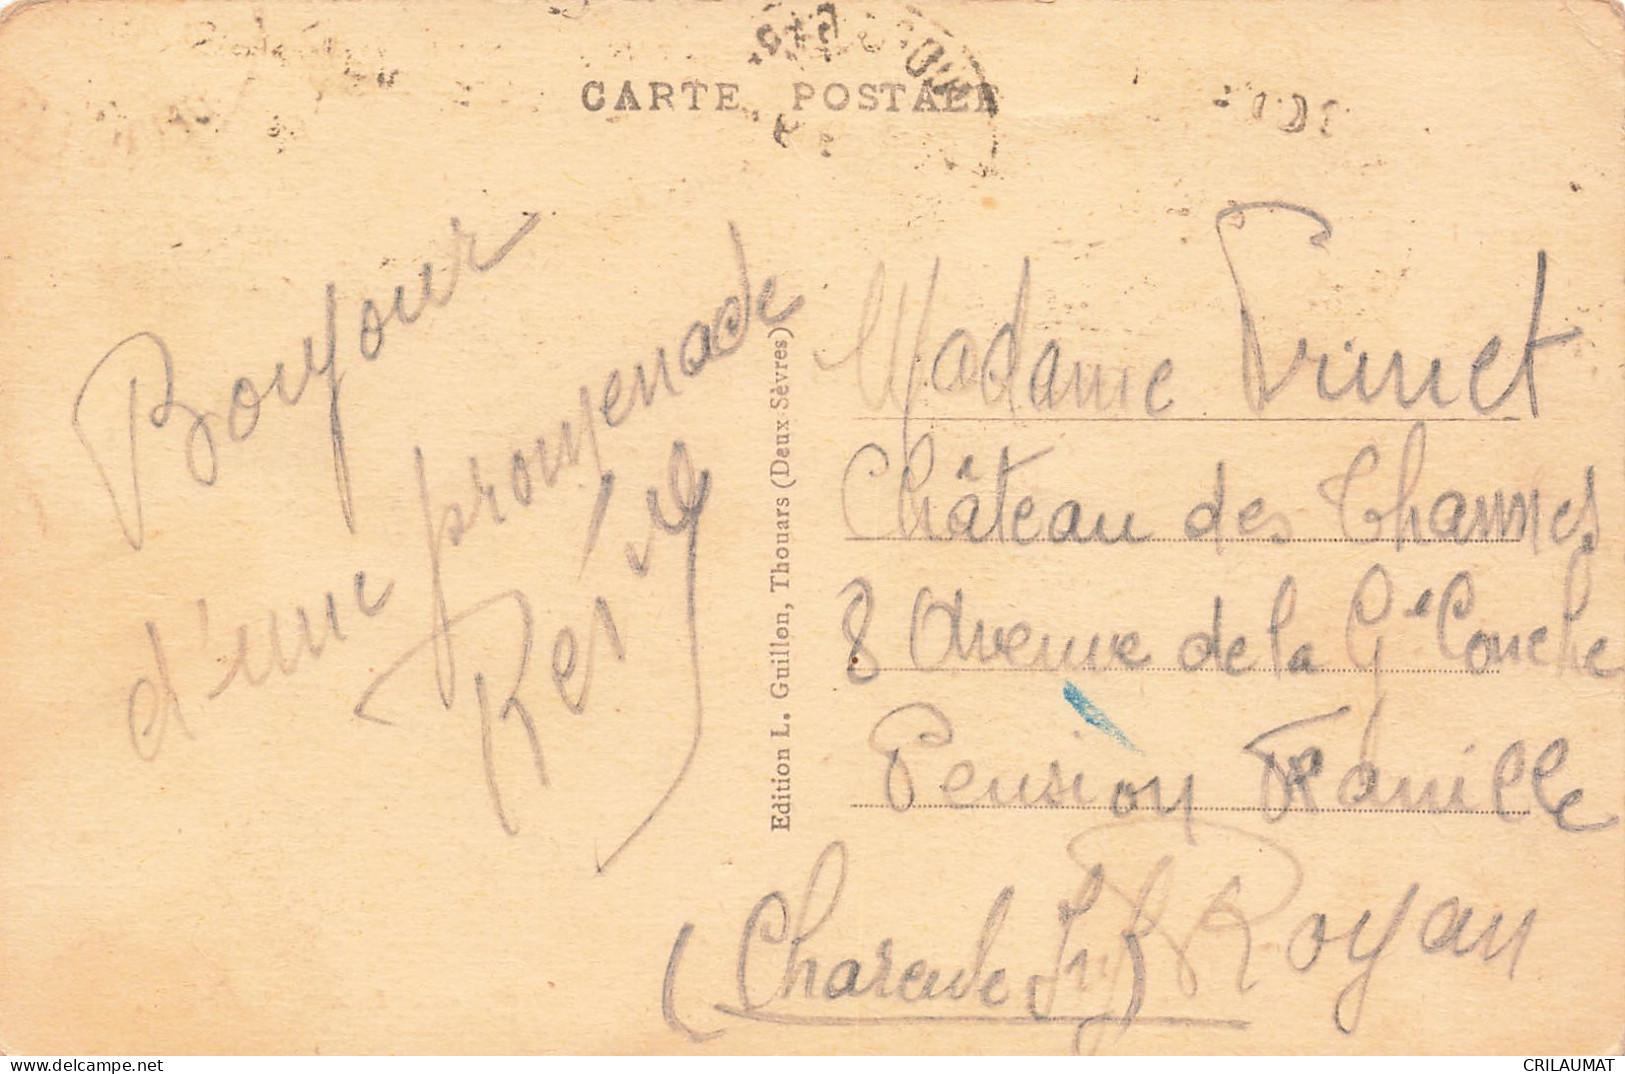 CARTE POSTALE
Bonjour
d'une promenade
Edition L. Guillon, Thouars (Deux-Sèvres)
Madame Prinet
Château des Thannes
8 Avenue de la Gde Conche
Pension Famille
Royan
(Charente Infre)
CRILAUMAT